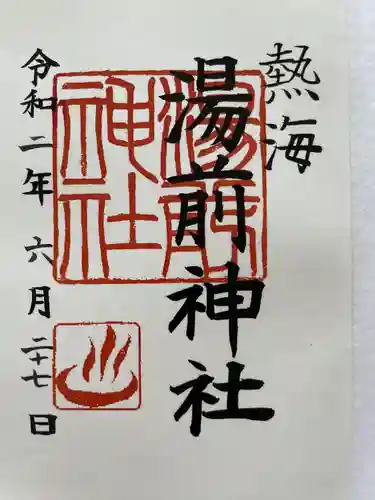 熱海
湯前神社
令和二年六月二十七日
湯前神社